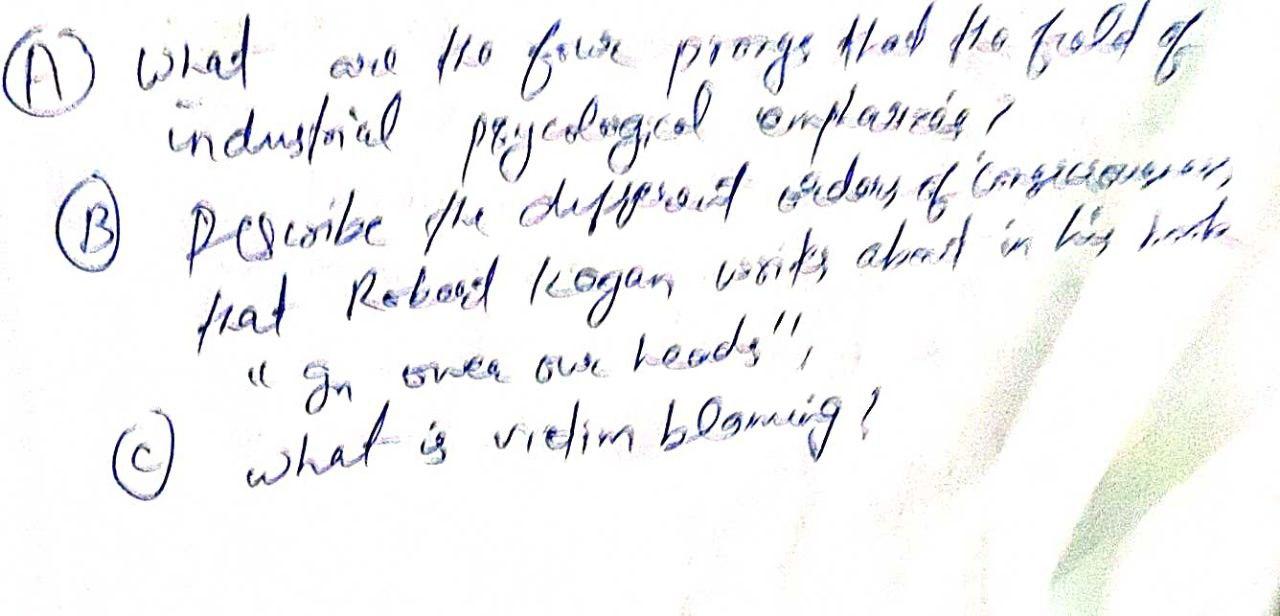 (A) What are the four prongs that the field of
industrial psycological emphasizes?
(B) Describe the different orders of consciousness,
that Robert Kegan writes about in his book
"In over our heads",
(C) what is victim blaming?